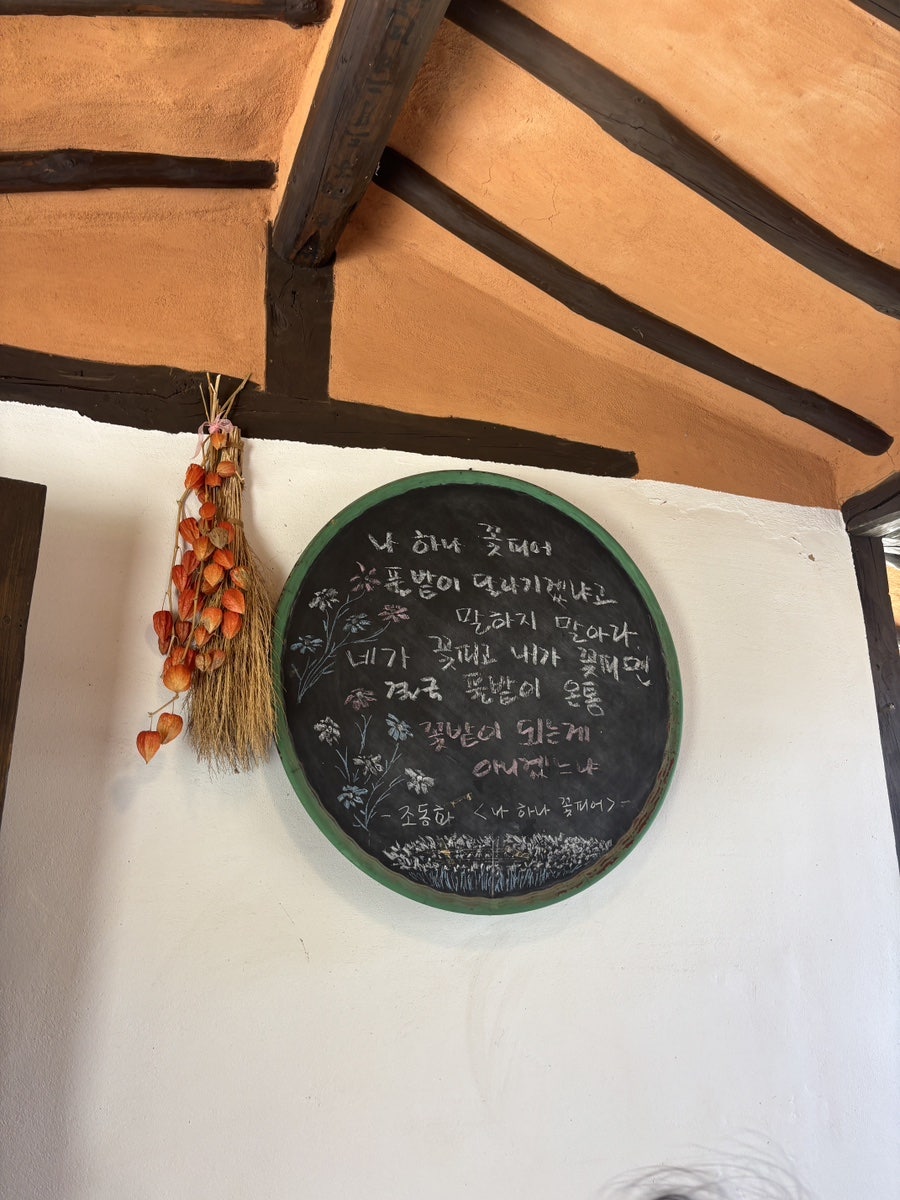 나 하나 꽃피어
풀밭이 달라지겠냐고
말하지 말아라.
네가 꽃피고 내가 꽃피면
결국 풀밭이 온통
꽃밭이 되는게
아니겠느냐
- 조동화 <나 하나 꽃피어> -